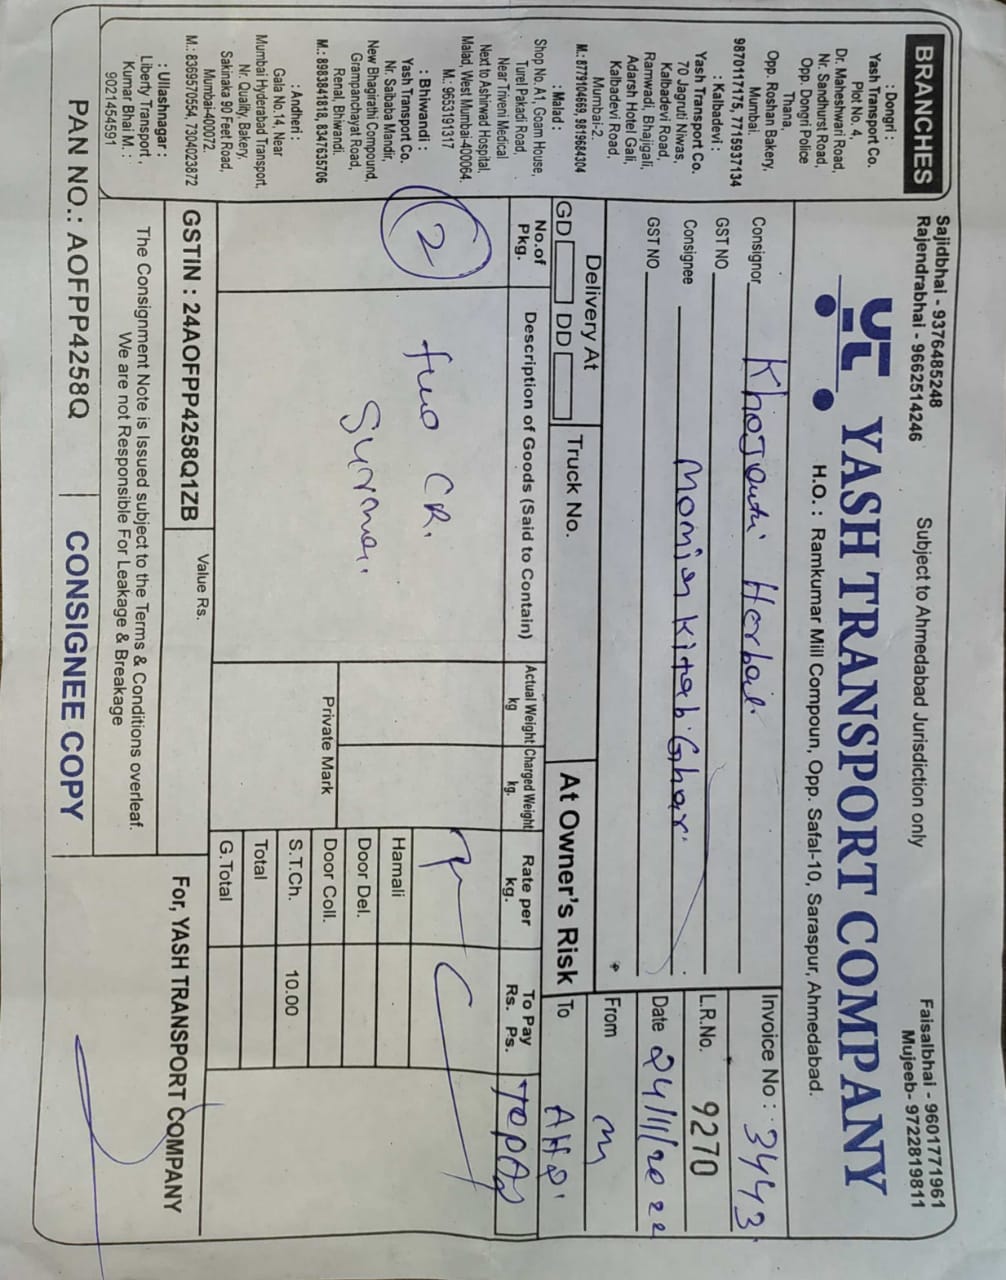 Sajidbhai - 9376485248
Rajendrabhai - 9662514246
Subject to Ahmedabad Jurisdiction only
Faisalbhai - 9601771961
Mujeeb- 9722819811
YASH TRANSPORT COMPANY
H.O. : Ramkumar Mill Compoun, Opp. Safal-10, Saraspur, Ahmedabad.
BRANCHES
: Dongri :
Yash Transport Co.
Plot No. 4,
Dr. Maheshwari Road,
Nr. Sandhurst Road,
Opp. Dongri Police
Thana,
Opp. Roshan Bakery,
Mumbai.
9870117175, 7715937134
: Kalbadevi :
Yash Transport Co.
70 Jagruti Niwas,
Kalbadevi Road,
Ramwadi, Bhajigali,
Adarsh Hotel Gali,
Kalbadevi Road,
Mumbai-2.
M.: 8779104669, 9819684304
: Malad :
Shop No. A1, Goam House,
Turel Pakadi Road,
Near Triveni Medical
Next to Ashirwad Hospital,
Malad, West Mumbai-400064.
M. : 9653191317
: Bhiwandi :
Yash Transport Co.
Nr. Saibaba Mandir,
New Bhagirathi Compound,
Grampanchayat Road,
Renal, Bhiwandi.
M. : 8983841818, 8347635706
: Andheri :
Gala No.14, Near
Mumbai Hyderabad Transport,
Nr. Quality, Bakery,
Sakinaka 90 Feet Road,
Mumbai-400072.
M.: 8369570554, 7304023872
: Ullashnagar :
Liberty Transport,
Kumar Bhai M. :
9021454591
Consignor Khojati Herbal.
GST NO
Consignee Momin Kitab Ghar
GST NO
Invoice No : 3443
L.R.No. 9270
Date 24/11/2022
Delivery At
GD DD
Truck No.
At Owner's Risk
From M
To AHD
No.of Pkg.
Description of Goods (Said to Contain)
Actual Weight kg
Charged Weight kg.
Rate per kg.
To Pay Rs. Ps.
TOPAY
2
two CR.
Surma.
Private Mark
Hamali
Door Del.
Door Coll.
S.T.Ch. 10.00
Total
G.Total
GSTIN : 24AOFPP4258Q1ZB
Value Rs.
The Consignment Note is Issued subject to the Terms & Conditions overleaf.
We are not Responsible For Leakage & Breakage
For, YASH TRANSPORT COMPANY
PAN NO.: AOFPP4258Q
CONSIGNEE COPY